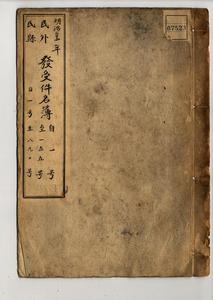 明治三年
發受件名簿
自一号
至一五五号
民外
民縣
自一号至八九〇号